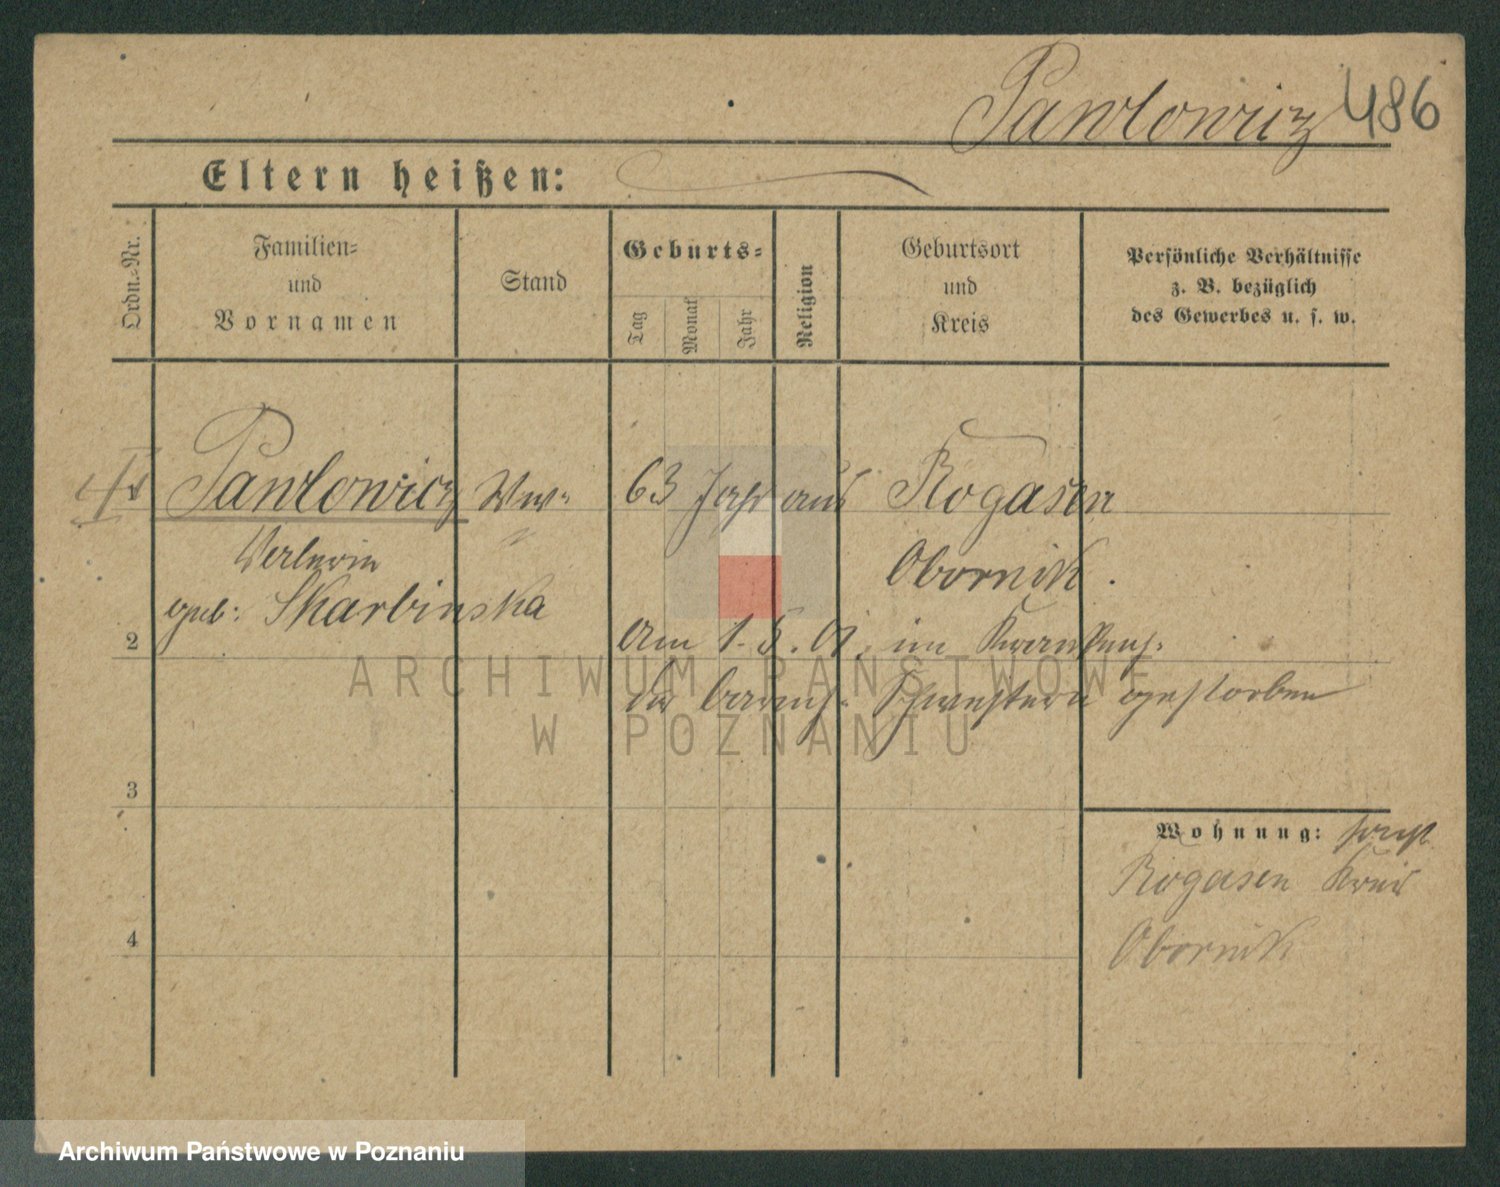 Pawlowicz 486
Eltern heißen:
Ordn.-Nr.
Familien-
und
Vornamen
Stand
Geburts-
Tag
Monat
Jahr
Religion
Geburtsort
und
Kreis
Persönliche Verhältnisse
z. B. bezüglich
des Gewerbes u. s. w.
Pawlowicz Ww. 63 Jahr aus Rogasen
Obornik.
geb: Skarbinska
2
am 1. 5. 01. im Krankenh.
der barmh. Schwestern gestorben
ARCHIWUM PAŃSTWOWE
W POZNANIU
3
Wohnung:
Rogasen Kreis
Obornik
4
Archiwum Państwowe w Poznaniu